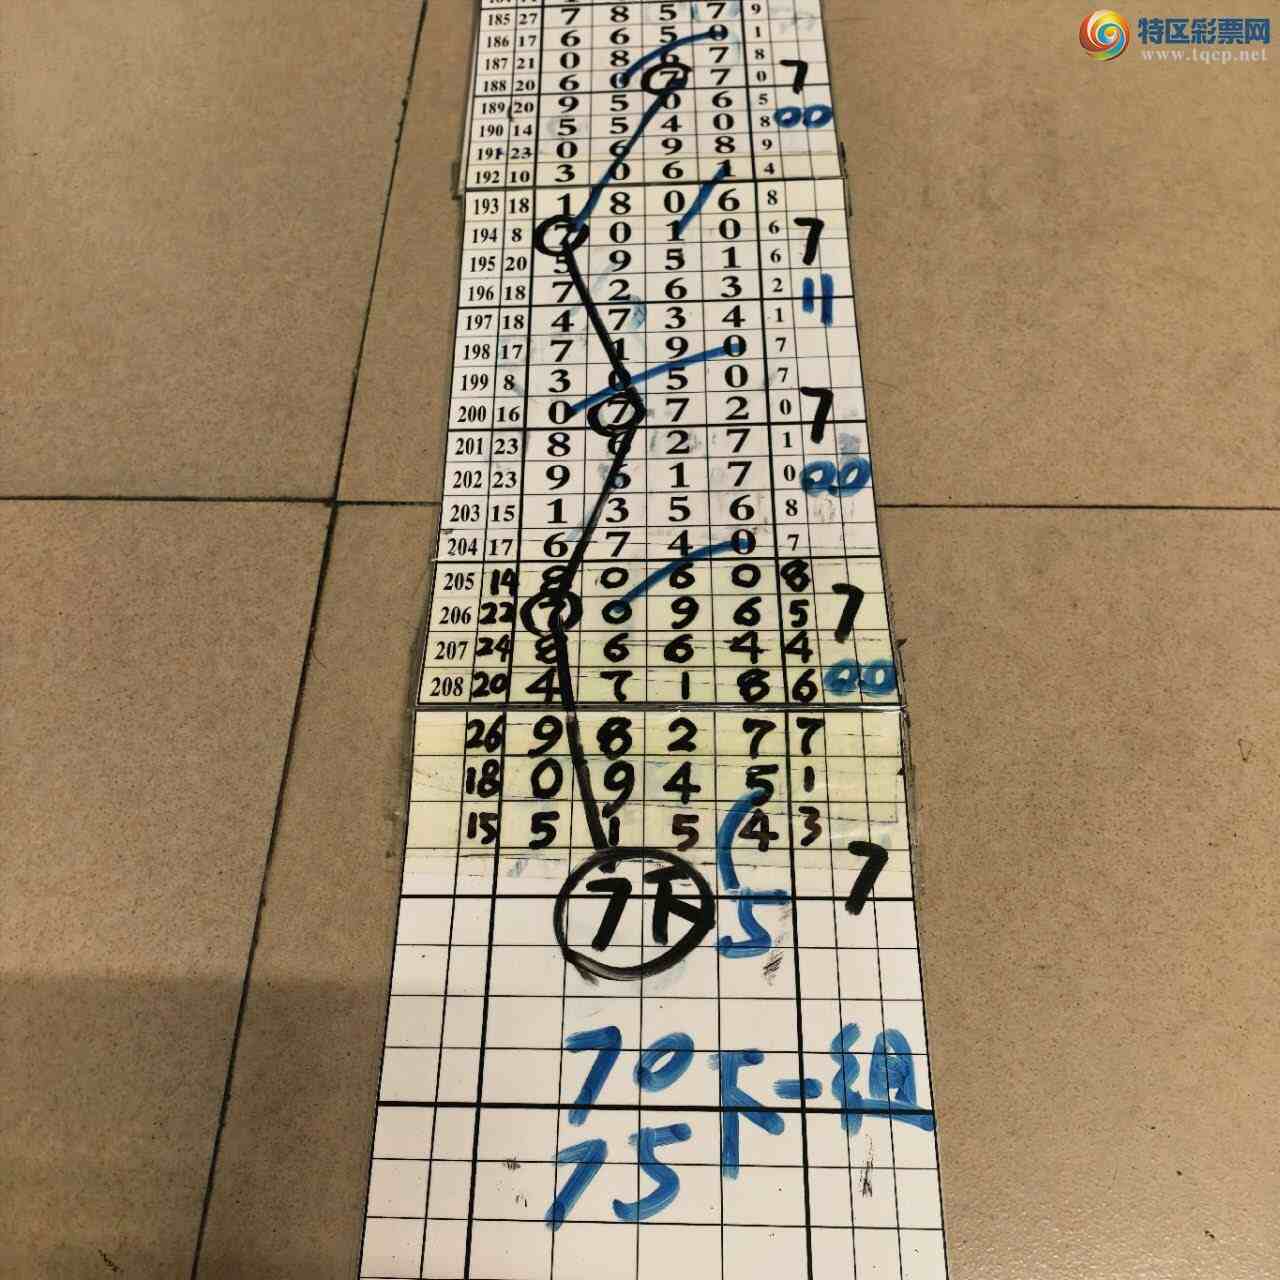 特区彩票网
www.tqcp.net
185 27 7 8 5 7 9
186 17 6 6 5 0 1
187 21 0 8 6 7 8
188 20 6 0 7 7 0 7
189 20 9 5 0 6 5 00
190 14 5 5 4 0 8
191 23 0 6 9 8 9
192 10 3 0 6 1 4
193 18 1 8 0 6 8
194 8 7 0 1 0 6 7
195 20 5 9 5 1 6
196 18 7 2 6 3 2 11
197 18 4 7 3 4 1
198 17 7 1 9 0 7
199 8 3 0 5 0 7
200 16 0 7 7 2 0 7
201 23 8 6 2 7 1
202 23 9 6 1 7 0 00
203 15 1 3 5 6 8
204 17 6 7 4 0 7
205 14 8 0 6 0 8
206 22 7 0 9 6 5 7
207 24 8 6 6 4 4
208 20 4 7 1 8 6 00
26 9 8 2 7 7
18 0 9 4 5 1
15 5 1 5 4 3
7下 5 7
70下一组
75